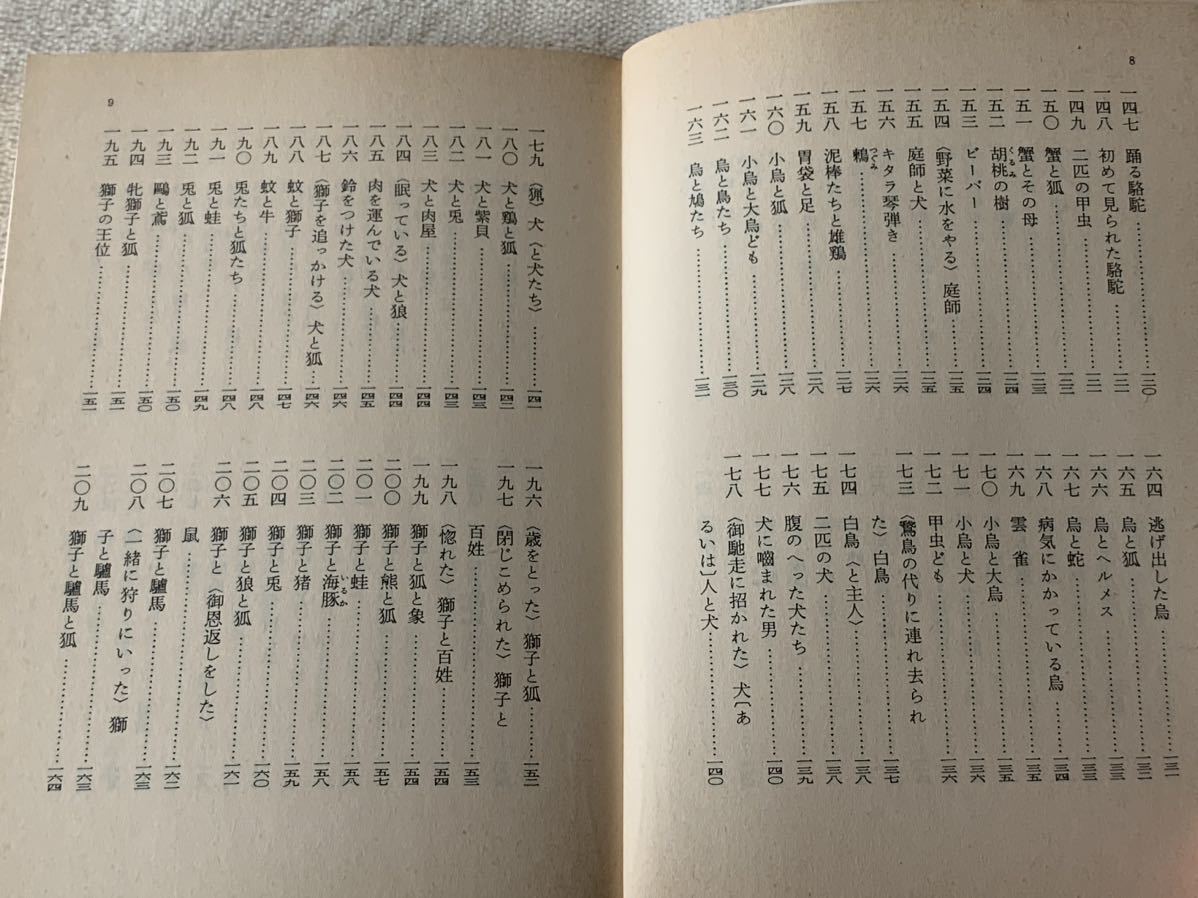 8
一四七 踊る駱駝……………一二〇
一四八 初めて見られた駱駝……………一二一
一四九 二匹の甲虫……………一二一
一五〇 蟹と狐……………一二二
一五一 蟹とその母……………一二三
一五二 胡桃の樹……………一二四
くるみ
一五三 ビーバー……………一二四
一五四 〈野菜に水をやる〉庭師……………一二五
一五五 庭師と犬……………一二五
一五六 キタラ琴弾き……………一二六
一五七 鶫……………一二六
つぐみ
一五八 泥棒たちと雄鶏……………一二七
一五九 胃袋と足……………一二八
一六〇 小烏と狐……………一二八
一六一 小烏と大烏ども……………一二九
一六二 烏と鳥たち……………一三〇
一六三 烏と鳩たち……………一三一
一六四 逃げ出した烏……………一三一
一六五 烏と狐……………一三二
一六六 烏とヘルメス……………一三三
一六七 烏と蛇……………一三三
一六八 病気にかかっている烏……………一三四
一六九 雲雀……………一三五
一七〇 小烏と大烏……………一三五
一七一 小烏と犬……………一三六
一七二 甲虫ども……………一三六
一七三 〈鵞鳥の代りに連れ去られ
た〉白鳥……………一三七
一七四 白鳥〈と主人〉……………一三八
一七五 二匹の犬……………一三八
一七六 腹のへった犬たち……………一三九
一七七 犬に嚙まれた男……………一四〇
一七八 〈御馳走に招かれた〉犬〔あ
るいは〕人と犬……………一四〇
9
一七九 〈猟〉犬〈と犬たち〉……………一四一
一八〇 犬と鶏と狐……………一四二
一八一 犬と紫貝……………一四三
一八二 犬と兎……………一四三
一八三 犬と肉屋……………一四四
一八四 〈眠っている〉犬と狼……………一四四
一八五 肉を運んでいる犬……………一四五
一八六 鈴をつけた犬……………一四六
一八七 〈獅子を追っかける〉犬と狐……………一四六
一八八 蚊と獅子……………一四七
一八九 蚊と牛……………一四八
一九〇 兎たちと狐たち……………一四八
一九一 兎と蛙……………一四九
一九二 兎と狐……………一五〇
一九三 鷗と鳶……………一五〇
一九四 牝獅子と狐……………一五一
一九五 獅子の王位……………一五一
一九六 〈歳をとった〉獅子と狐……………一五二
一九七 〈閉じこめられた〉獅子と
百姓……………一五三
一九八 〈惚れた〉獅子と百姓……………一五四
一九九 獅子と狐と象……………一五四
二〇〇 獅子と熊と狐……………一五七
二〇一 獅子と蛙……………一五八
二〇二 獅子と海豚……………一五八
いるか
二〇三 獅子と猪……………一五九
二〇四 獅子と兎……………一六〇
二〇五 獅子と狼と狐……………一六一
二〇六 獅子と〈御恩返しをした〉
鼠……………一六二
二〇七 獅子と驢馬……………一六三
二〇八 〈一緒に狩りにいった〉獅
子と驢馬……………一六三
二〇九 獅子と驢馬と狐……………一六四